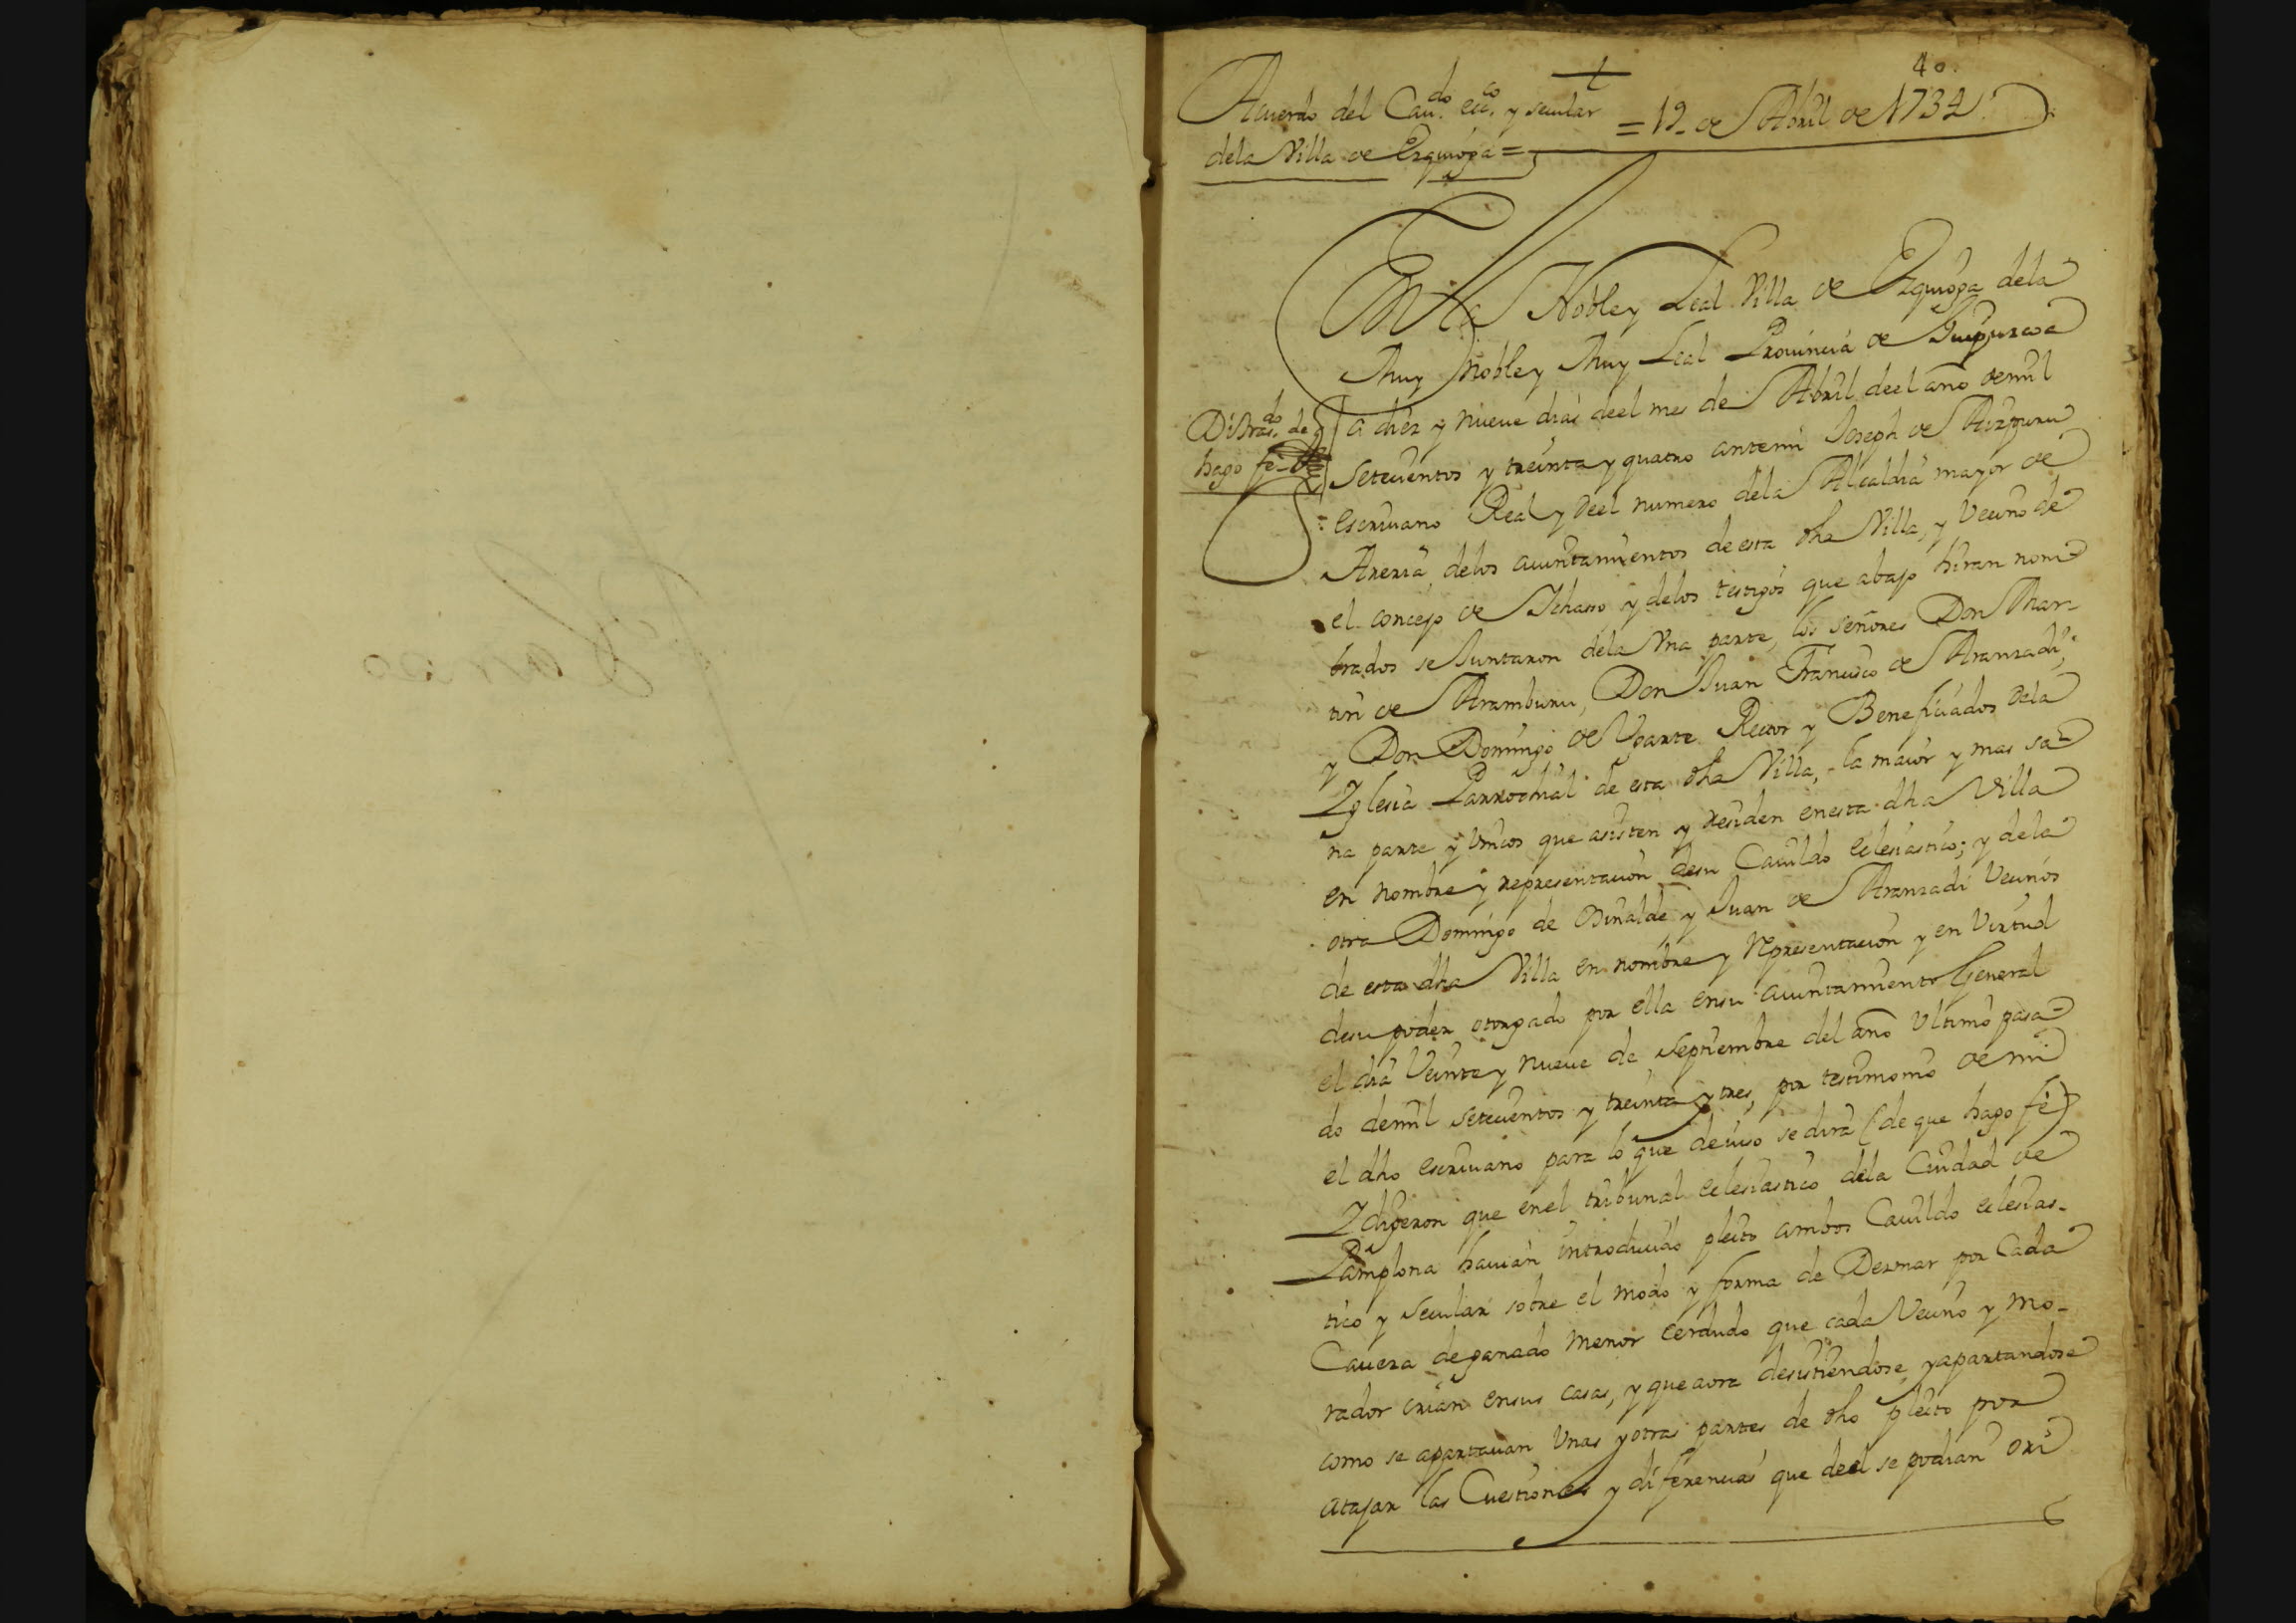 40.
Acuerdo del Cau.do ecc.co y secular = 19- de Abril de 1734.
dela Villa de Ezquioga =
En la Noble y Leal Villa de Ezquioga dela
Muy Noble y Muy Leal Prouincia de Guipuzcoa
a diez y nueve dias deel mes de Abril deel año demil
Setecientos y treinta y quatro antemi Joseph de Aizpuru
escriuano Real y deel numero dela Alcaldia mayor de
Areria, delos aiuntamientos de esta dha Villa, y Vecino de
el concejo de Ichasso, y delos testigos que abajo hiran nom=
brados se Juntaron dela Vna parte, los Señores Don Mar-
tin de Aramburu, Don Juan Francisco de Aranzadi,
y Don Domingo de Vgarte Rector y Beneficiados dela
Yglesia Parrochial de esta dha Villa, la maior y mas sa=
na parte y Vnicos que asisten y residen enesta dha Villa
en nombre y representacion desu Cauildo eclesiastico; y dela
otra Domingo de Oinalde y Juan de Aranzadi Vecinos
de esta dha Villa en nombre y representacion y en Virtud
desu poder otorgado por ella ensu aiuntamiento General
el dia Veinte y nueue de Septiembre del año Vltimo pasa=
do demil setecientos y treinta y tres, por testimonio de mi
el dho escriuano para lo que deiuso se dira (de que hago fe)
Y dijeron que enel tribunal eclesiastico dela Ciudad de
Pamplona hauian introducido pleito ambos Cauildo eclesias-
tico y Secular sobre el modo y forma de Dezmar por Cada
Caueza de ganado menor cerdudo que cada Vecino y mo-
rador crian ensus casas, y que aora desistiendose, y apartandose
como se apartauan Vnas y otras partes de dho pleito por
atajar las Cuestiones y diferencias que deel se podian ori
hago fe